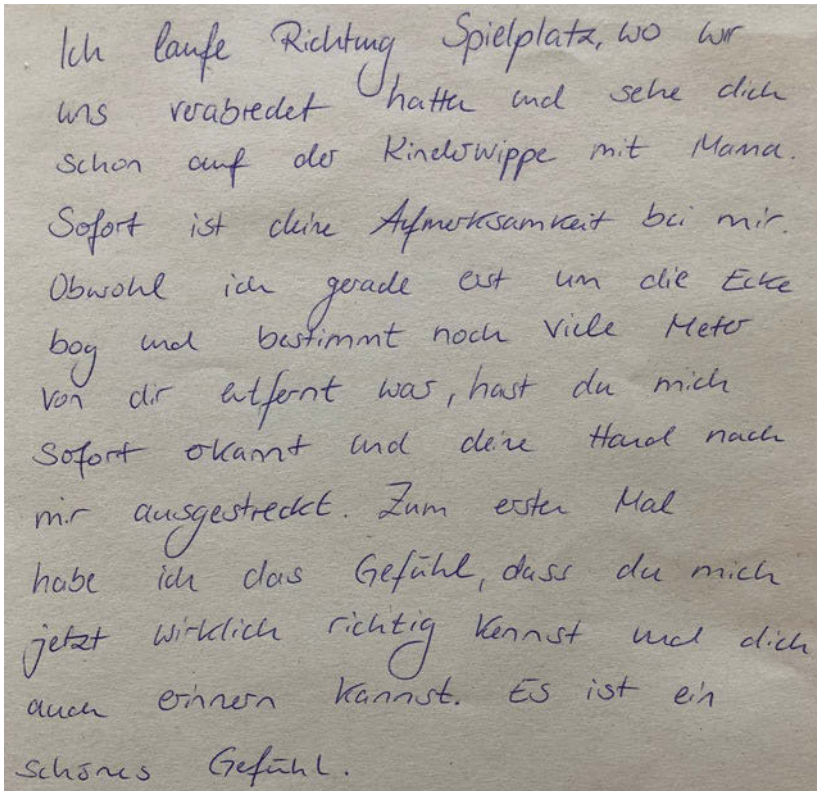 Ich laufe Richtung Spielplatz, wo wir
uns verabredet hatten und sehe dich
schon auf der Kinderwippe mit Mama.
Sofort ist deine Aufmerksamkeit bei mir.
Obwohl ich gerade erst um die Ecke
bog und bestimmt noch viele Meter
von dir entfernt war, hast du mich
sofort erkannt und deine Hand nach
mir ausgestreckt. Zum ersten Mal
habe ich das Gefühl, dass du mich
jetzt wirklich richtig kennst und dich
auch erinnern kannst. Es ist ein
schönes Gefühl.